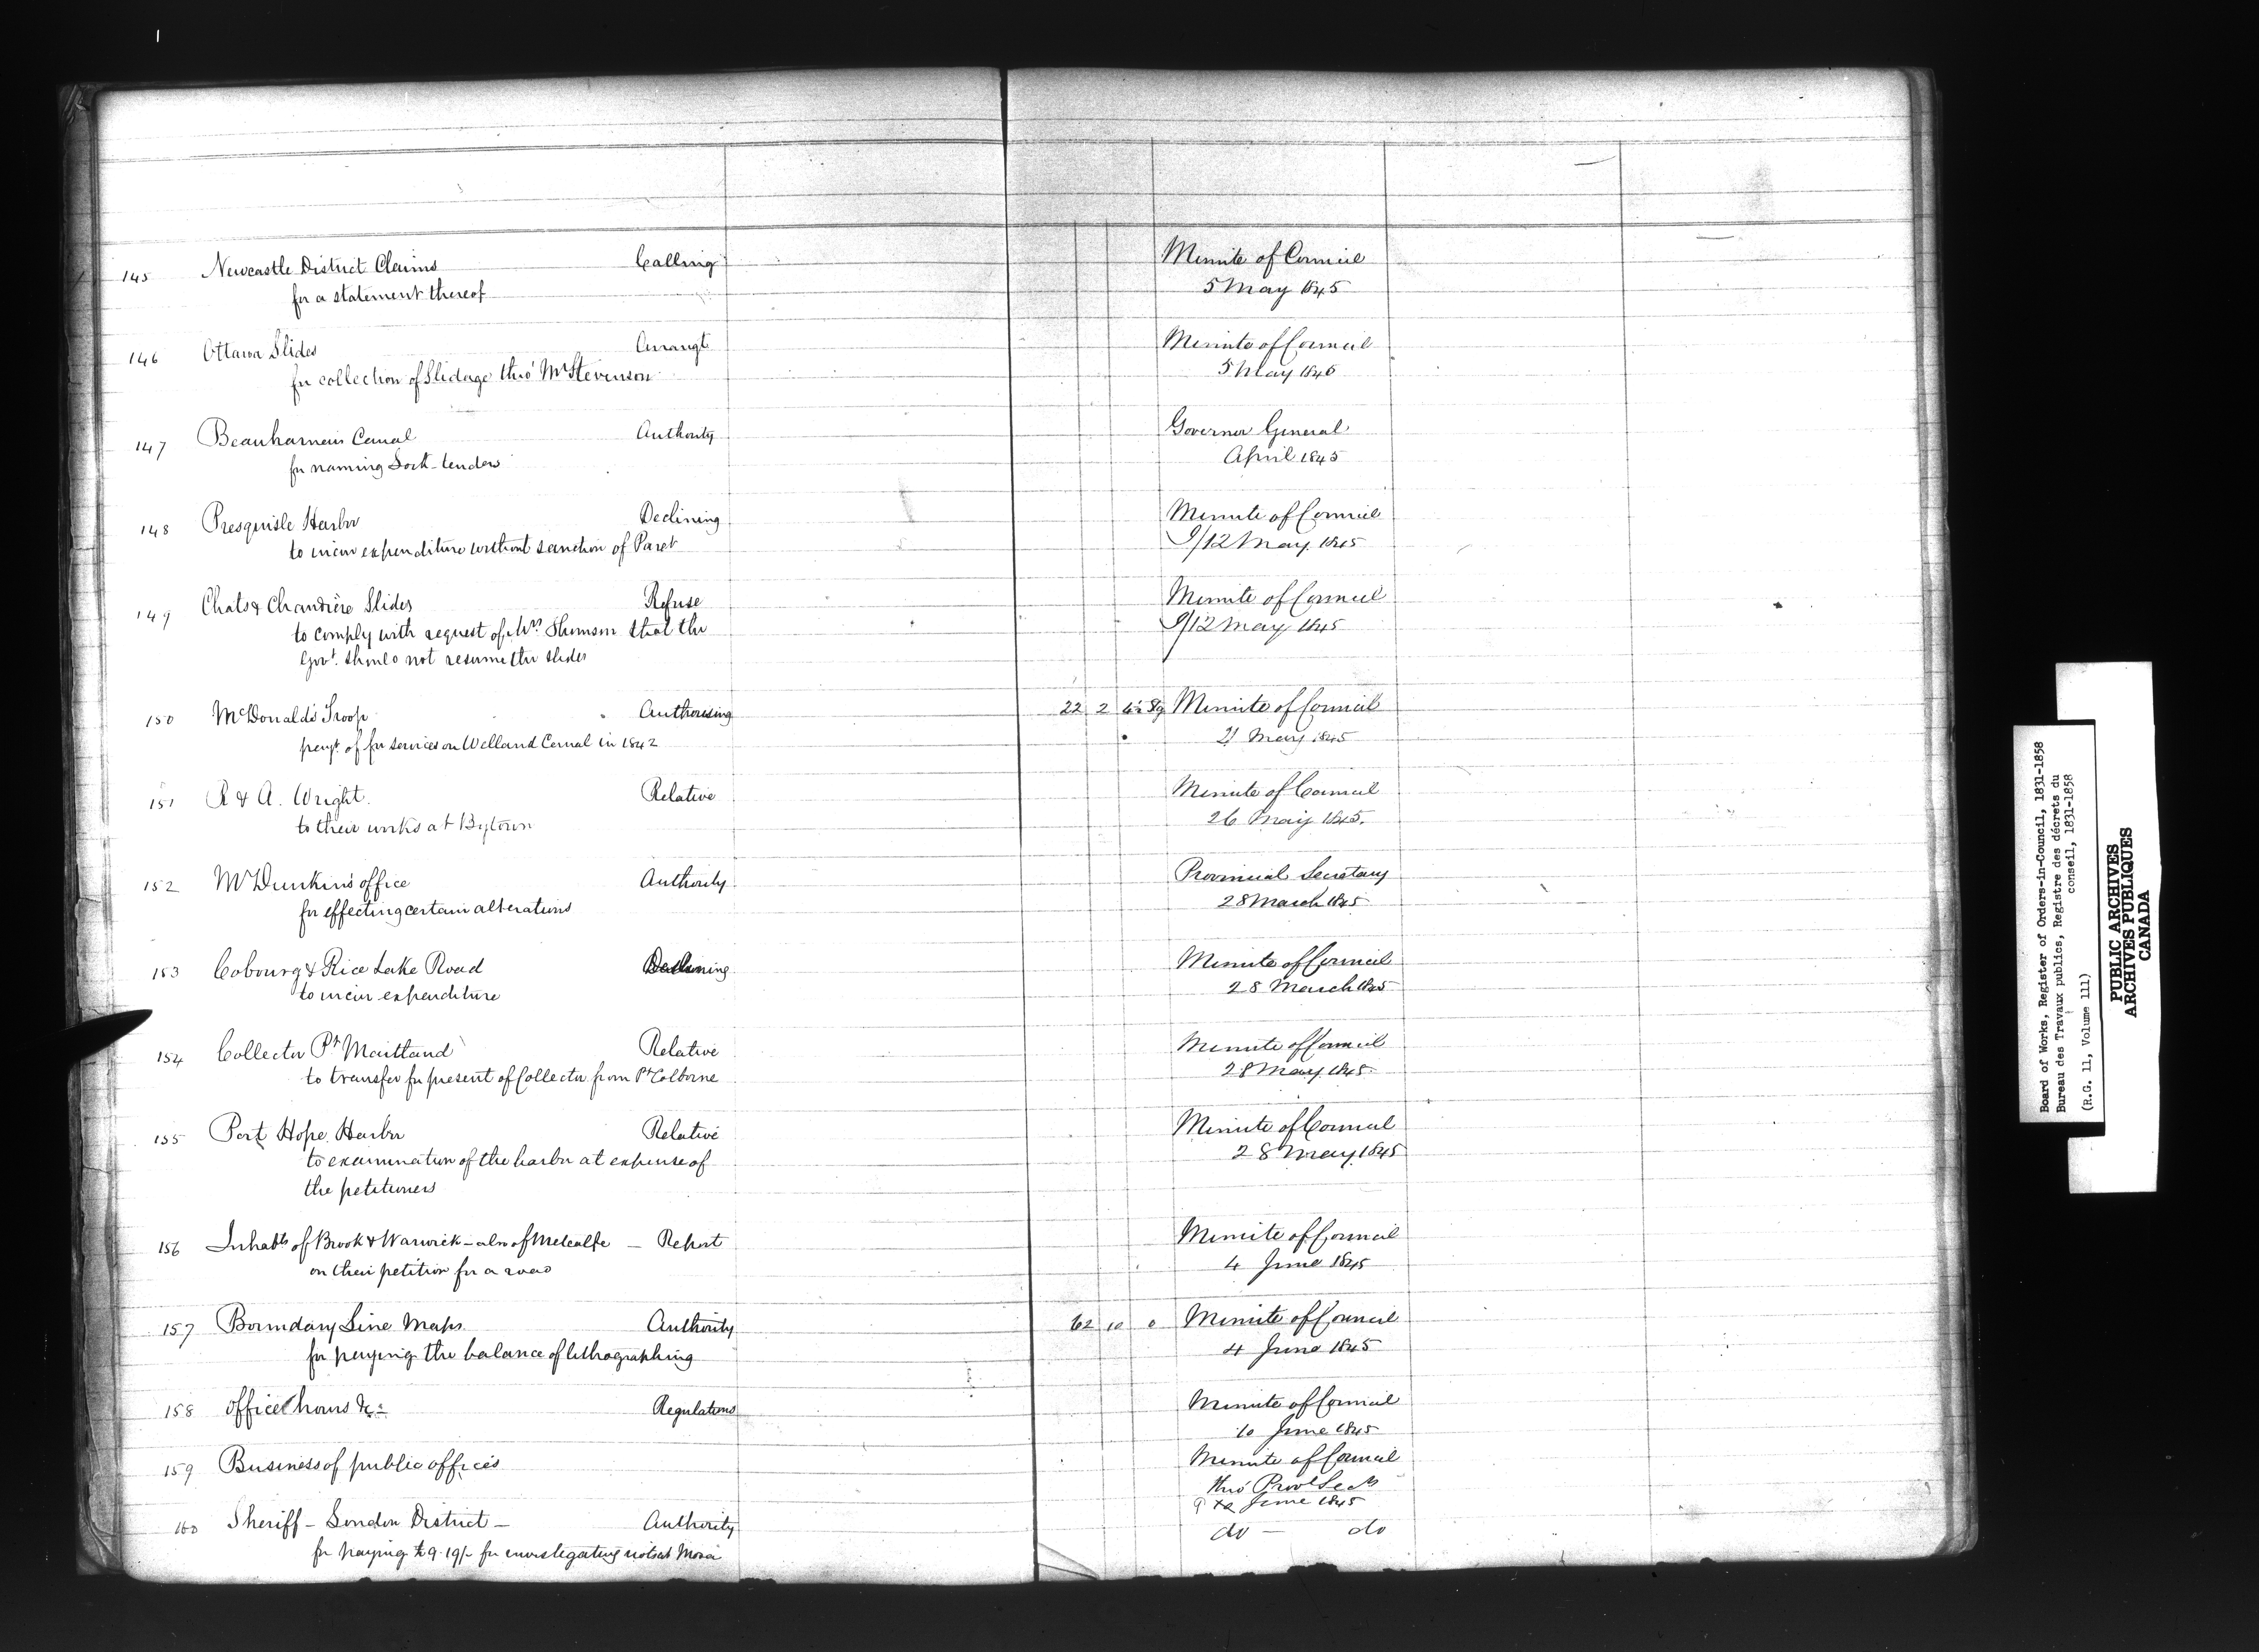 145 Newcastle District Claims Calling Minute of Council
for a statement thereof 5 May 1845
146 Ottawa Slides Arrangt Minute of Council
for collection of Slidage thro' Mr Stevenson 5 May 1845
147 Beauharnois Canal Authority Governor General
for naming Lock-tenders April 1845
148 Presquisle Harbor Declining Minute of Council
to incur expenditure without sanction of Parlt 9/12 May 1845
149 Chats & Chaudière Slides Refuse Minute of Council
to comply with request of that the 9/12 May 1845
Govt. should not resume the slides
150 McDonald's Troop Authorising 22 2 Minute of Council
payt. of for services on Welland Canal in 1842 21 May 1845
151 R & A. Wright. Relative Minute of Council
to their works at Bytown 26 May 1845.
152 Mr Dunkin's office Authority Provincial Secretary
for effecting certain alterations 28 March 1845
153 Cobourg & Rice Lake Road Declining Minute of Council
to incur expenditure 28 March 1845
154 Collector Pt Maitland Relative Minute of Council
to transfer for present of Collector from Pt Colborne 28 May 1845
155 Port Hope Harbor Relative Minute of Council
to examination of the harbor at expense of 28 May 1845
the petitioners
156 Inhabts of Brook & Warwick - also of Metcalfe - Report Minute of Council
on their petition for a road 4 June 1845
157 Boundary Line Maps. Authority 62 10 0 Minute of Council
for paying the balance of lithographing 4 June 1845
158 Office hours &c Regulations Minute of Council
10 June 1845
159 Business of public offices Minute of Council
thro' Provl Secy
June 1845
160 Sheriff - London District - Authority do - do
for paying £9.19/- for investigating riots at
Board of Works, Register of Orders-in-Council, 1831-1858
Bureau des Travaux publics, Registre des décrets du
conseil, 1831-1858
(R.G. 11, Volume 111)
PUBLIC ARCHIVES
ARCHIVES PUBLIQUES
CANADA